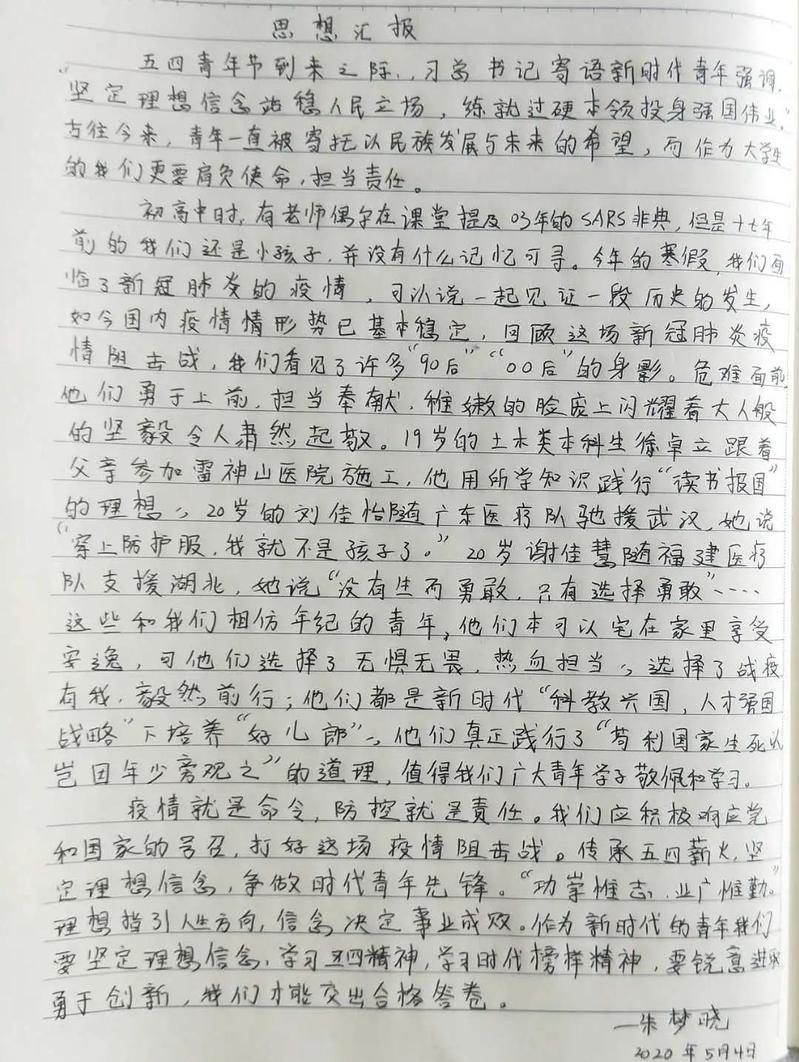 思想汇报
五四青年节到来之际,习总书记寄语新时代青年强调,
“坚定理想信念站稳人民立场,练就过硬本领投身强国伟业。”
古往今来,青年一直被寄托以民族发展与未来的希望,而作为大学生
的我们更要肩负使命,担当责任。
初高中时,有老师偶尔在课堂提及03年的SARS非典,但是十七年
前的我们还是小孩子,并没有什么记忆可寻。今年的寒假,我们面
临了新冠肺炎的疫情,可以说一起见证一段历史的发生,
如今国内疫情情形势已基本稳定,回顾这场新冠肺炎疫
情阻击战,我们看见了许多“90后”“00后”的身影。危难面前,
他们勇于上前,担当奉献,稚嫩的脸庞上闪耀着大人般
的坚毅令人肃然起敬。19岁的土木类本科生徐卓立跟着
父亲参加雷神山医院施工,他用所学知识践行“读书报国”
的理想、20岁的刘佳怡随广东医疗队驰援武汉,她说
“穿上防护服,我就不是孩子了。”20岁谢佳慧随福建医疗
队支援湖北,她说“没有生而勇敢,只有选择勇敢”……
这些和我们相仿年纪的青年,他们本可以宅在家里享受
安逸,可他们选择了无惧无畏,热血担当、选择了战疫
有我,毅然前行;他们都是新时代“科教兴国,人才强国
战略”下培养“好儿郎”、他们真正践行了“苟利国家生死以
岂因年少旁观之”的道理,值得我们广大青年学子敬佩和学习。
疫情就是命令,防控就是责任。我们应积极响应党
和国家的号召,打好这场疫情阻击战。传承五四薪火,坚
定理想信念,争做时代青年先锋。“功崇惟志,业广惟勤。”
理想指引人生方向,信念决定事业成败。作为新时代的青年我们
要坚定理想信念,学习五四精神,学习时代榜样精神,要锐意进取
勇于创新,我们才能交出合格答卷。
—朱梦晓
2020年5月4日